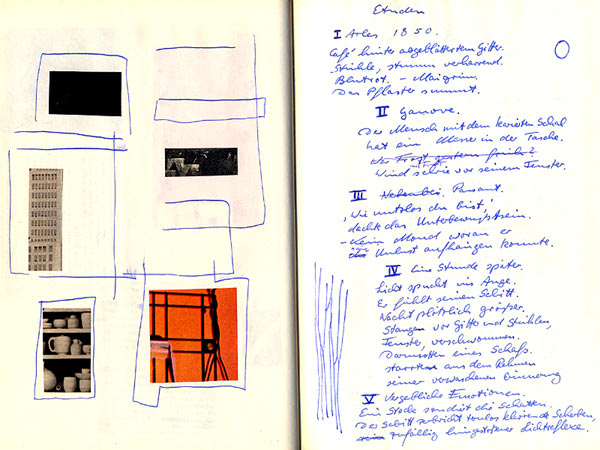 Etuden
I Arles 1850.
Café hinter abgeblättertem Gitter.
Stühle, stumm verharrend.
Blutrot. – Maigrün.
Das Pflaster summt.
II Ganove.
Der Mensch mit dem karierten Schal
hat ein Messer in der Tasche.
Wer gestern früh?
Wind schrie vor seinem Fenster.
III Passant.
'Wie nutzlos du bist,'
dachte das Unterbewußtsein.
– Kein Mond woran er
Unlust aufhängen konnte.
IV Eine Stunde später.
Licht spuckt ins Auge.
Er fühlt seinen Schritt.
Nacht plötzlich größer.
Stangen vor Gitter und Stühlen,
Fenster, verschwommen.
eines Schafs
aus dem Rahmen
seiner Erinnerung
V Vergebliche Emotionen.
Ein Stock die Schatten.
Der Schritt zerbricht tonlos klirrende Scherben,
zufällig Lichtreflexe.